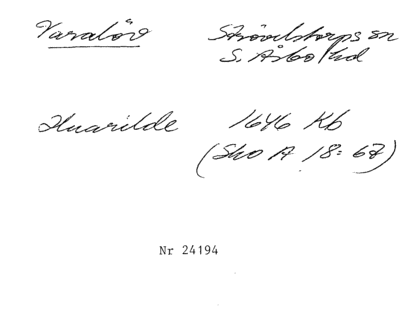 Varalöv Strövelstorps sn
S. Åsbo hd
Huarilde 1646 Kb
(Sko A 18: 67)
Nr 24194